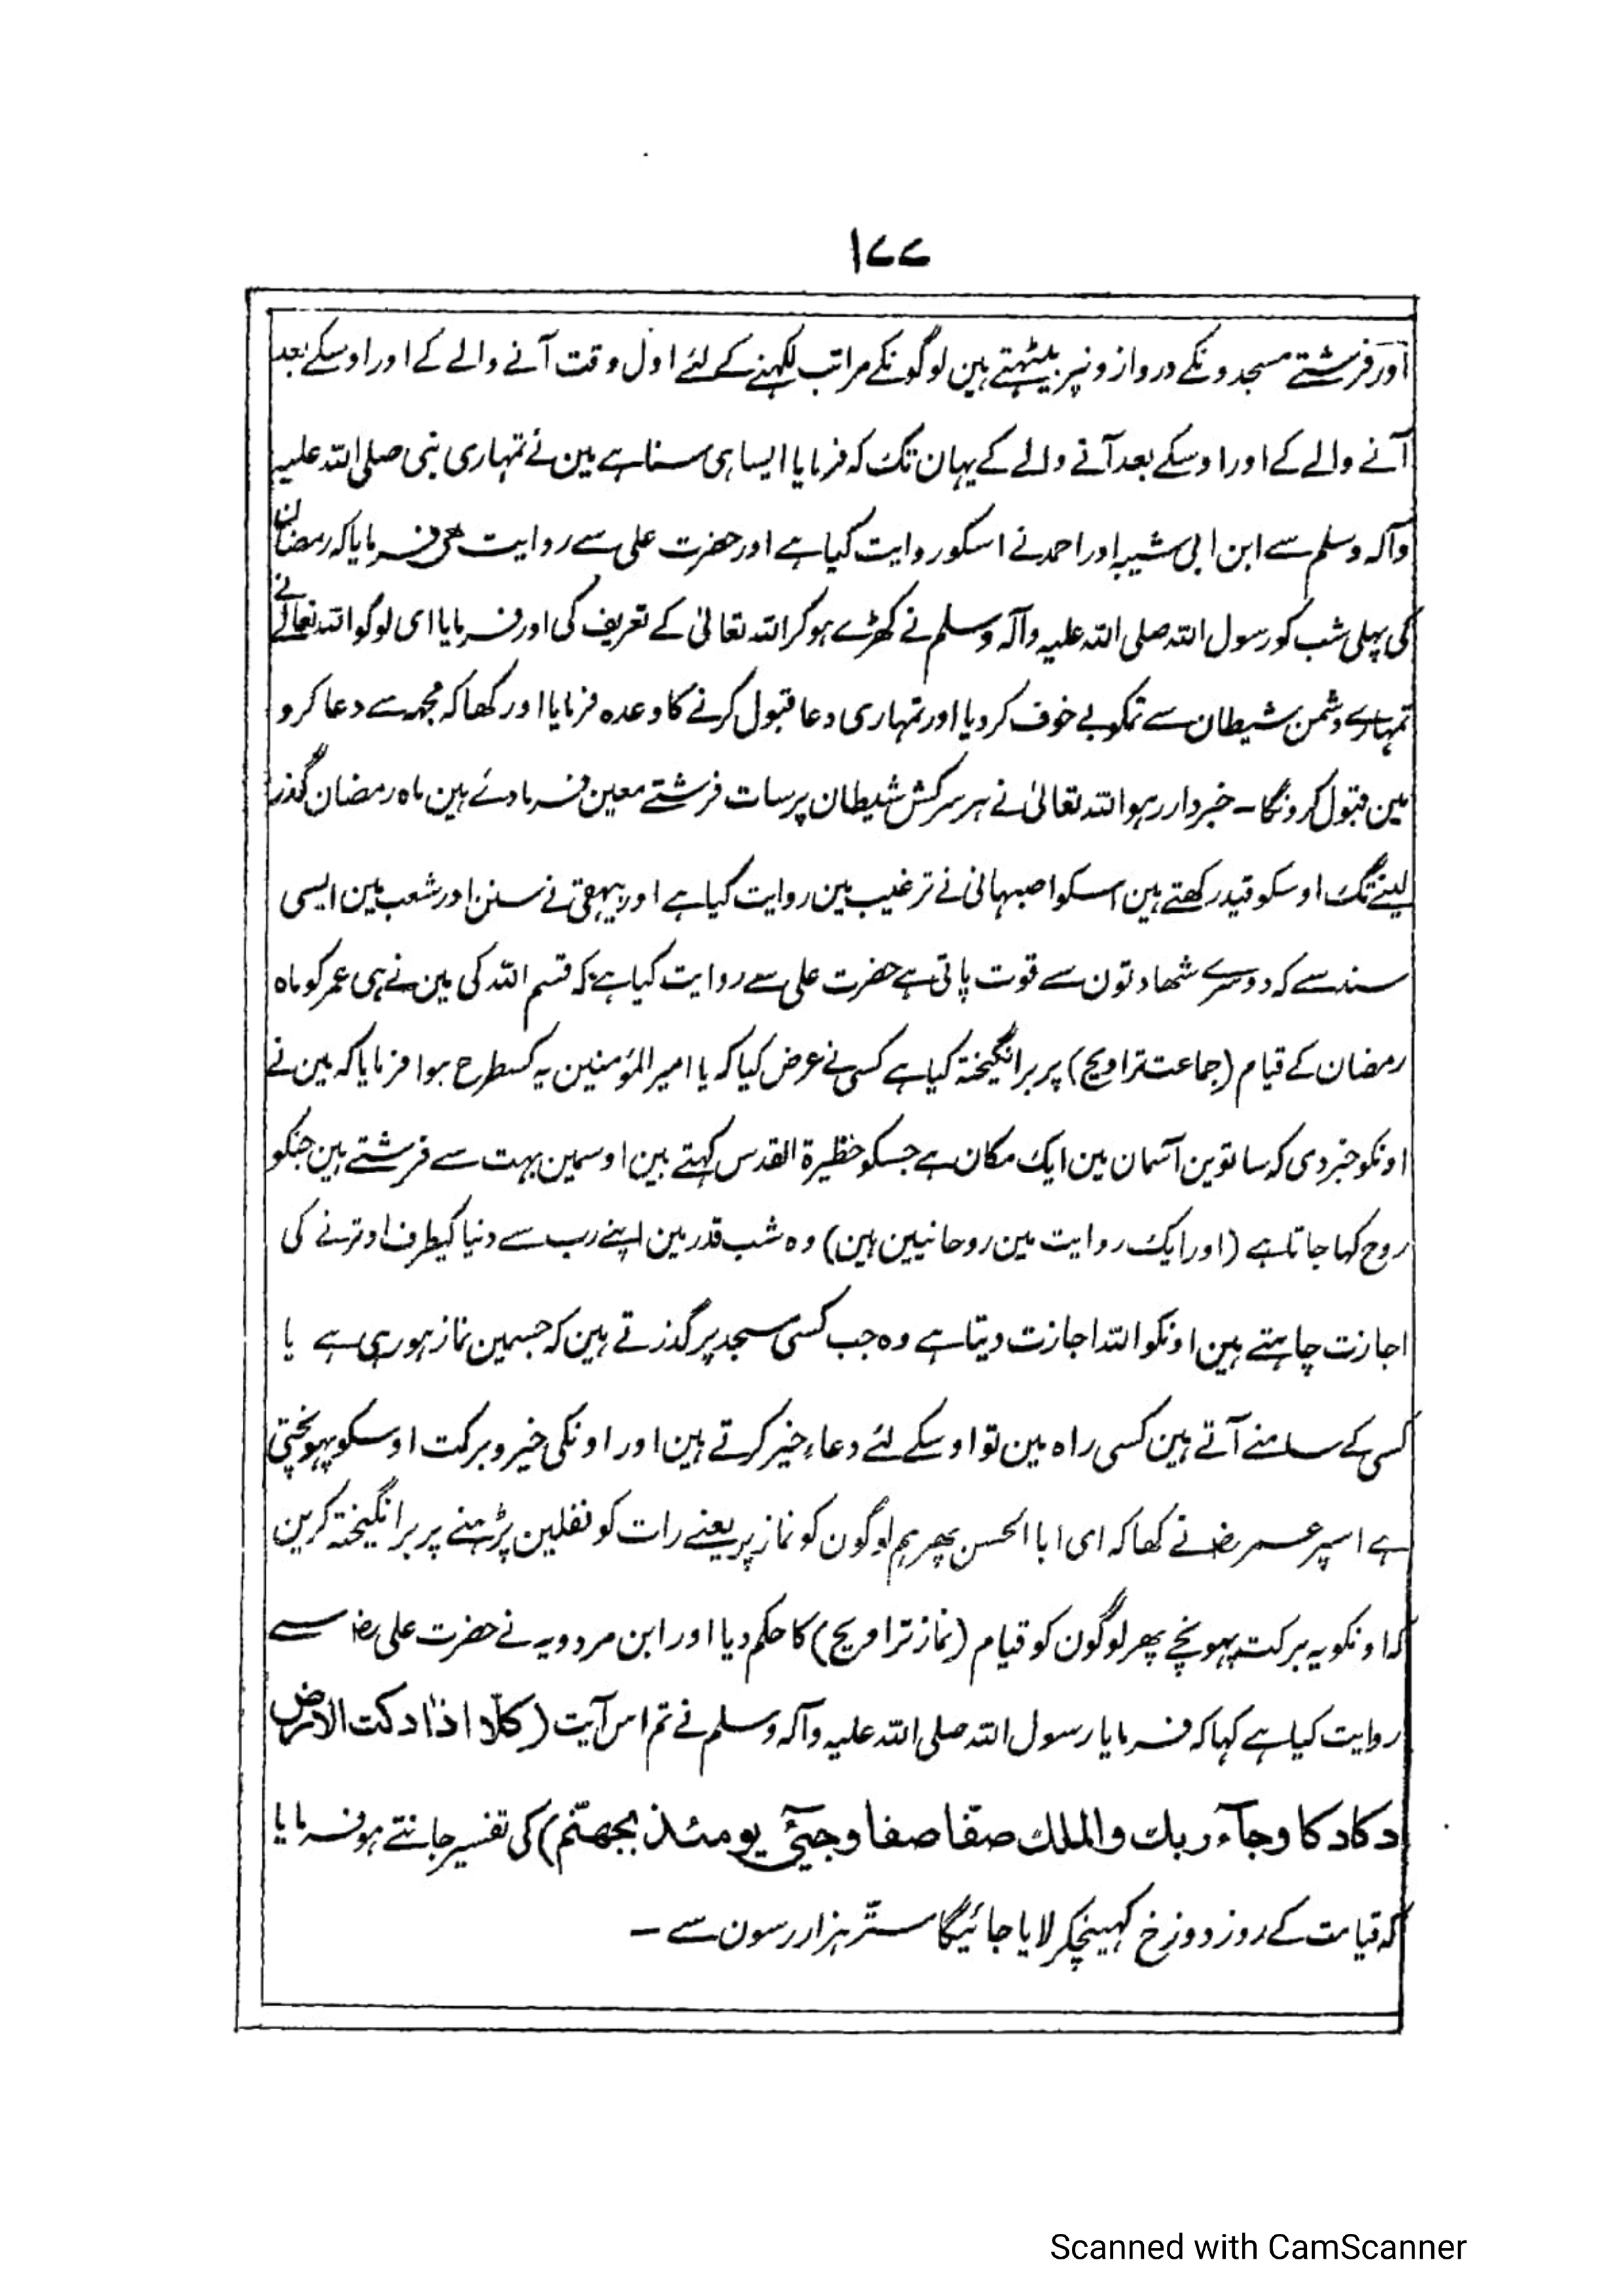 ۱۷۷
اور فرشتے مسجدونکے دروازونپر بیٹہتے ہین لوگونکے مراتب لکہنے کے لئے اول وقت آنے والے کے اور اوسکے بعد
آنے والے کے اور اوسکے بعد آنے والے کے یہان تک کہ فرمایا ایسا ہی سنا ہے مین نے تمہاری نبی صلی اللہ علیہ
وآلہ وسلم سے ابن ابی شیبہ اور احمد نے اسکو روایت کیا ہے اور حضرت علی سے روایت ہی فرمایا کہ رمضان
کی پہلی شب کو رسول اللہ صلی اللہ علیہ وآلہ وسلم نے کھڑے ہو کر اللہ تعالیٰ کے تعریف کی اور فرمایا ای لوگو اللہ تعالیٰ نے
تمہارے دشمن شیطان سے تمکو بے خوف کر دیا اور تمہاری دعا قبول کرنے کا وعدہ فرمایا اور کھا کہ مجہہ سے دعا کرو
مین قبول کرونگا ۔ خبردار رہو اللہ تعالیٰ نے ہر سرکش شیطان پر سات فرشتے معین فرمادئے ہین ماہ رمضان گذر
لینے تک اوسکو قید رکھتے ہین اسکو اصبہانی نے ترغیب مین روایت کیا ہے اور بیہقی نے سنن اور شعب مین ایسی
سند سے کہ دوسرے شھادتون سے قوت پاتی ہے حضرت علی سے روایت کیا ہے کہ قسم اللہ کی مین نے ہی عمر کو ماہ
رمضان کے قیام (جماعت تراویح) پر برانگیختہ کیا ہے کسی نے عرض کیا کہ یا امیر المؤمنین یہ کسطرح ہوا فرمایا کہ مین نے
اونکو خبر دی کہ ساتوین آسمان مین ایک مکان ہے جسکو حظیرۃ القدس کہتے ہین اوسمین بہت سے فرشتے ہین جنکو
روح کہا جاتا ہے (اور ایک روایت مین روحانیین ہین) وہ شب قدر مین اپنے رب سے دنیا کیطرف اوترنے کی
اجازت چاہتے ہین اونکو اللہ اجازت دیتا ہے وہ جب کسی مسجد پر گذرتے ہین کہ جسمین نماز ہورہی ہے یا
کسی کے سامنے آتے ہین کسی راہ مین تو اوسکے لئے دعاء خیر کرتے ہین اور اونکی خیر و برکت اوسکو پہونچتی
ہے اسپر عمر رض نے کھا کہ ای ابا الحسن پھر ہم لوگون کو نماز پر یعنے رات کو نفلین پڑہنے پر برانگیختہ کرین
کہ اونکو یہ برکت پہونچے پھر لوگون کو قیام (نماز تراویح) کا حکم دیا اور ابن مردویہ نے حضرت علی رض سے
روایت کیا ہے کہا کہ فرمایا رسول اللہ صلی اللہ علیہ وآلہ وسلم نے تم اس آیت (کلّا اذا دکت الارض
دکا دکا وجآء ربك والملك صفا صفا وجیئ یومئذ بجھنّم) کی تفسیر جانتے ہو فرمایا
کہ قیامت کے روز دوزخ کہینچکر لایا جائیگا ستّر ہزار رسون سے ۔
Scanned with CamScanner